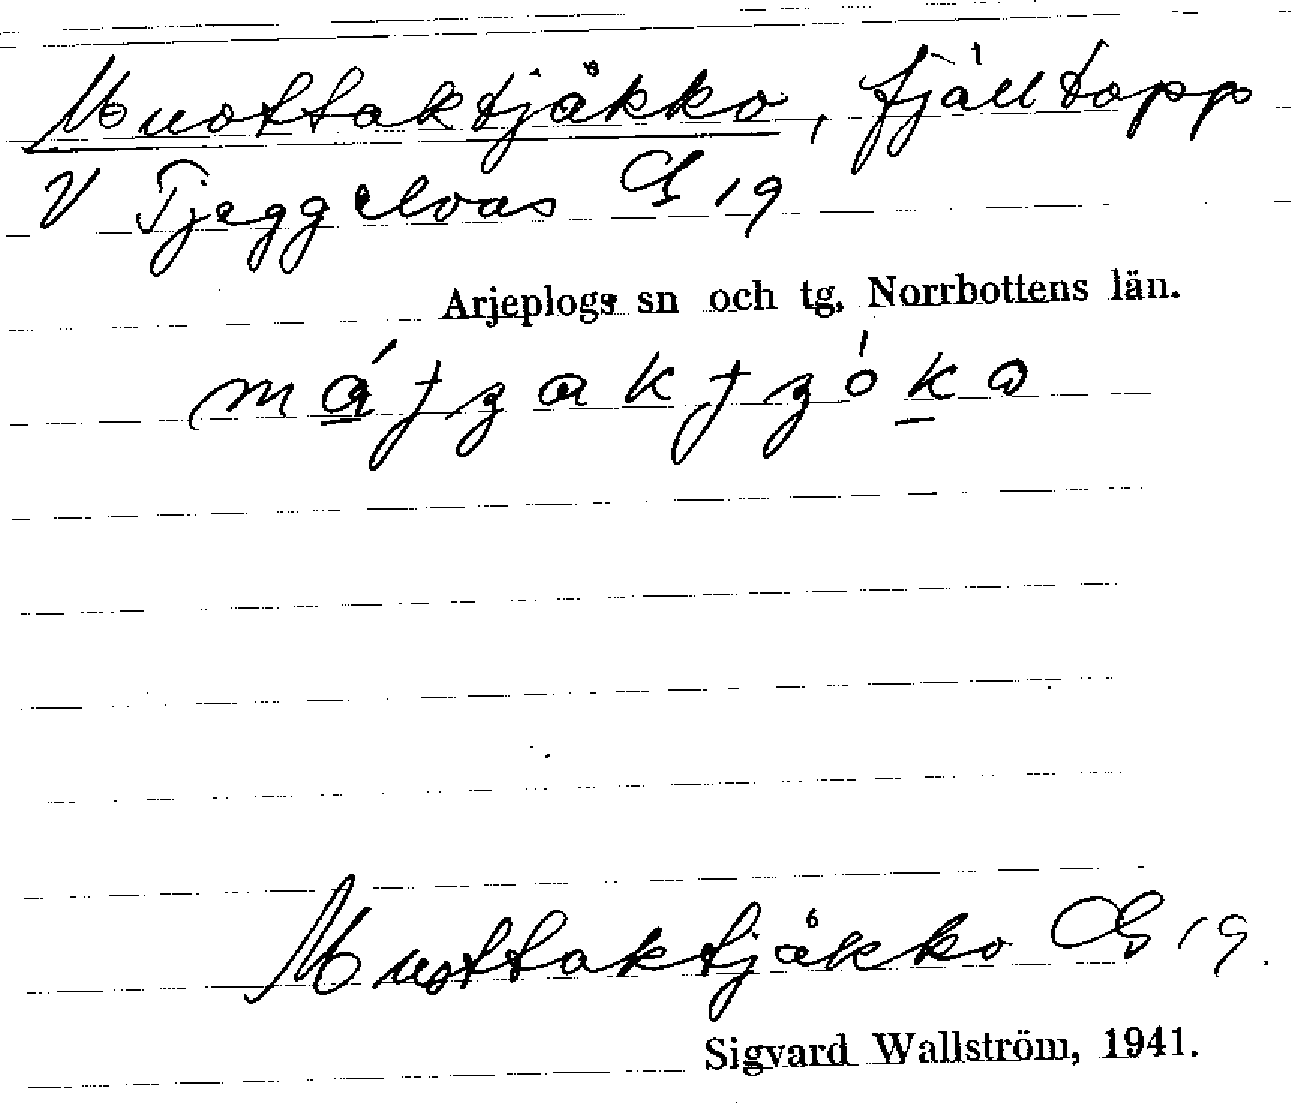 Muottaktjåkko, fjälltopp
V Tjeggelvas G 19
Arjeplogs sn och tg. Norrbottens län.
Muottaktjåkko G 19.
Sigvard Wallström, 1941.